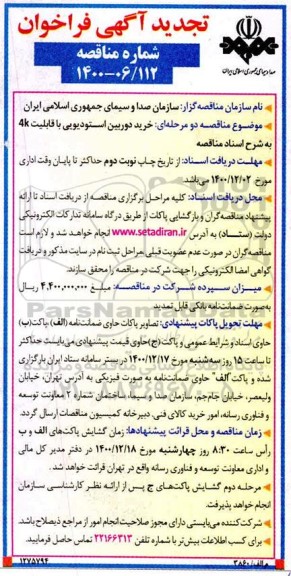 تجدید آگهی فراخوان
شماره مناقصه
۱۴۰۰-۰۶/۱۱۲
صدا و سیمای جمهوری اسلامی ایران
نام سازمان مناقصه‌گزار: سازمان صدا و سیمای جمهوری اسلامی ایران
موضوع مناقصه دو مرحله‌ای: خرید دوربین استودیویی با قابلیت 4k
به شرح اسناد مناقصه
مهلت دریافت اسناد: از تاریخ چاپ نوبت دوم حداکثر تا پایان وقت اداری
مورخ ۱۴۰۰/۱۲/۰۲ می‌باشد.
محل دریافت اسناد: کلیه مراحل برگزاری مناقصه از دریافت اسناد تا ارائه
پیشنهاد مناقصه‌گران و بازگشایی پاکات از طریق درگاه سامانه تدارکات الکترونیکی
دولت (ستاد) به آدرس www.setadiran.ir انجام خواهد شد و لازم است
مناقصه‌گران در صورت عدم عضویت قبلی مراحل ثبت نام در سایت مذکور و دریافت
گواهی امضا الکترونیکی را جهت شرکت در مناقصه را محقق سازند.
میزان سپرده شرکت در مناقصه: مبلغ ۴.۴۰۰.۰۰۰.۰۰۰ ریال
به‌صورت ضمانت‌نامه بانکی قابل تمدید
مهلت تحویل پاکات پیشنهادی: تصاویر پاکات حاوی ضمانت‌نامه (الف) پاکت(ب)
حاوی اسناد و شرایط عمومی و پاکت (ج) حاوی قیمت پیشنهادی می‌بایست حداکثر
تا ساعت ۱۵ روز سه‌شنبه مورخ ۱۴۰۰/۱۲/۱۷ در بستر سامانه ستاد ایران بارگذاری
شده و پاکت الف" حاوی ضمانت‌نامه به صورت فیزیکی به آدرس تهران، خیابان
ولیعصر، خیابان جام‌جم، سازمان صدا و سیما، ساختمان شماره ۲ معاونت توسعه
و فناوری رسانه، امور خرید کالای فنی دبیرخانه کمیسیون مناقصات ارسال گردد.
زمان مناقصه و محل قرائت پیشنهادها: زمان گشایش پاکت‌های الف و ب
رأس ساعت ۸:۳۰ روز چهارشنبه مورخ ۱۴۰۰/۱۲/۱۸ در دفتر مدیر کل مالی
و اداری معاونت توسعه و فناوری رسانه واقع در تهران قرائت خواهد شد.
مرحله دوم گشایش پاکت‌های ج پس از ارائه نظر کارشناسی سازمان
انجام خواهد پذیرفت.
شرکت‌کننده می‌بایستی دارای مجوز صلاحیت انجام امور از مراجع ذیصلاح باشد.
برای کسب اطلاعات بیش‌تر با شماره تلفن ۲۲۱۶۶۳۱۳ تماس حاصل فرمایید.
م الف/ ۳۸۶۰
۱۲۷۵۷۹۴
ParsNamadData